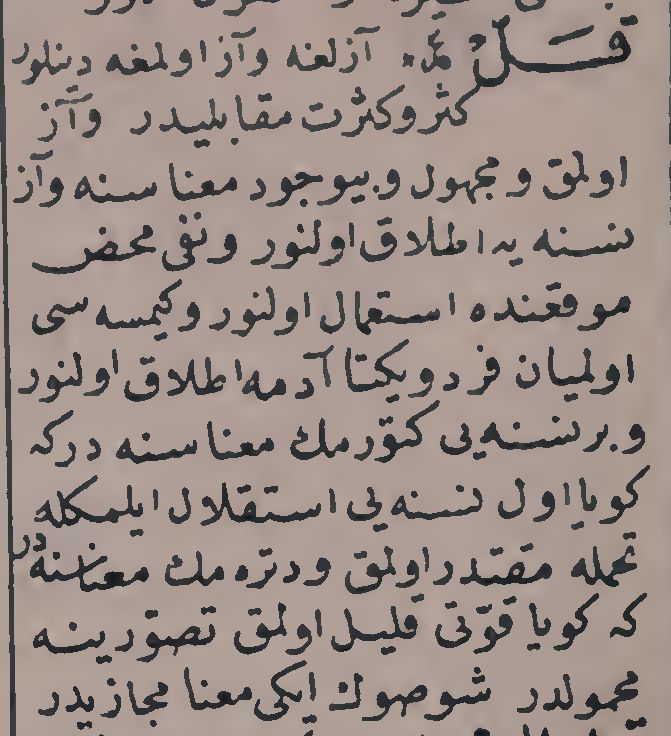 قَلَّ آزلغه وآز اولمغه دينلور
كثر وكثرت مقابليدر وآز
اولمق ومجهول وبيوجود معناسنه وآز
نسنه يه اطلاق اولنور ونفى محض
موقعنده استعمال اولنور وكيمسه سى
اولميان فرد ويكتا آدمه اطلاق اولنور
وبر نسنه يى كتورمك معناسنه در كه
كويا اول نسنه يى استقلال ايلمكله
تحمله مقتدر اولمق ودتره مك معناسنه در
كه كويا قوّتى قليل اولمق تصوّرينه
محمولدر شو صوك ايكى معنا مجازيدر